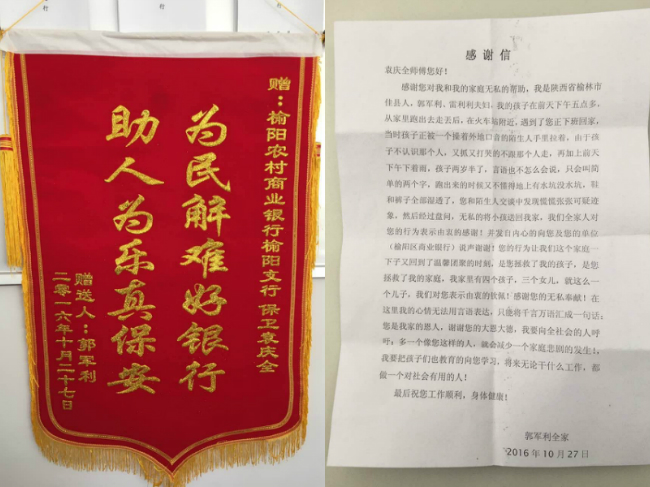 赠：榆阳农村商业银行榆阳支行 保卫袁庆全
为民解难好银行
助人为乐真保安
赠送人：郭军利
二零一六年十月二十七日
感谢信
袁庆全师傅您好！
感谢您对我和我的家庭无私的帮助，我是陕西省榆林市
佳县人，郭军利、雷利利夫妇，我的孩子在前天下午五点多，
从家里跑出去走丢后，在火车站附近，遇到了您正下班回家，
当时孩子正被一个操着外地口音的陌生人手里拉着，由于孩
子不认识那个人，又抓又打哭的不跟那个人走，再加上前天
下午下着雨，孩子两岁半了，言语也不怎么会说，只会叫简
单的两个字，跑出来的时候又不懂得地上有水坑没水坑，鞋
和裤子全部湿透了，您和陌生人交谈中发现慌慌张张可疑迹
象，然后经过盘问，无私的将小孩送回我家，我们全家人对
您的行为表示由衷的感谢！并发自内心的向您及您的单位
（榆阳区商业银行）说声谢谢！您的行为让我们这个家庭一
下子又回到了温馨团聚的时刻，是您拯救了我的孩子，是您
拯救了我的家庭，我家里有四个孩子，三个女儿，就这么一
个儿子，我们对您表示由衷的钦佩！感谢您的无私奉献！在
这里我的心情无法用言语表达，只能将千言万语汇成一句话：
您是我家的恩人，谢谢您的大恩大德，我要向全社会的人呼
吁：多一个像您这样的人，就会减少一个家庭悲剧的发生！，
我要把孩子们也教育的向您学习，将来无论干什么工作，都
做一个对社会有用的人！
最后祝您工作顺利，身体健康！
郭军利全家
2016年10月27日